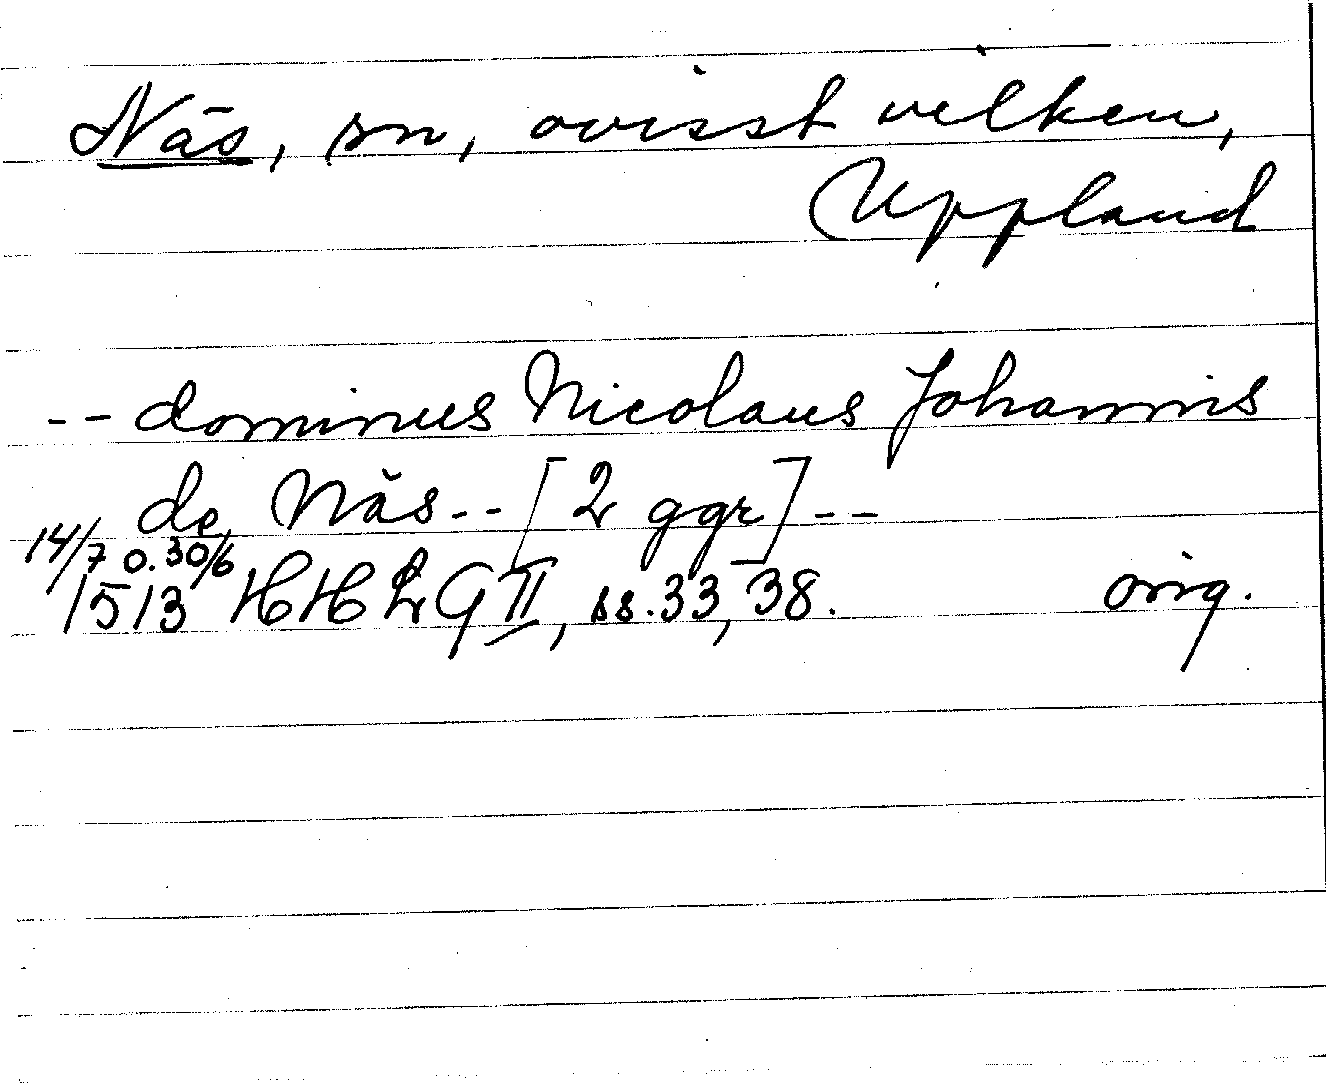 Näs, sn, ovisst vilken,
Uppland
-- dominus Nicolaus Johannis
de Näs -- [2 ggr] --
14/7 o. 30/6
1513 HHLG II, ss. 33, 38. orig.